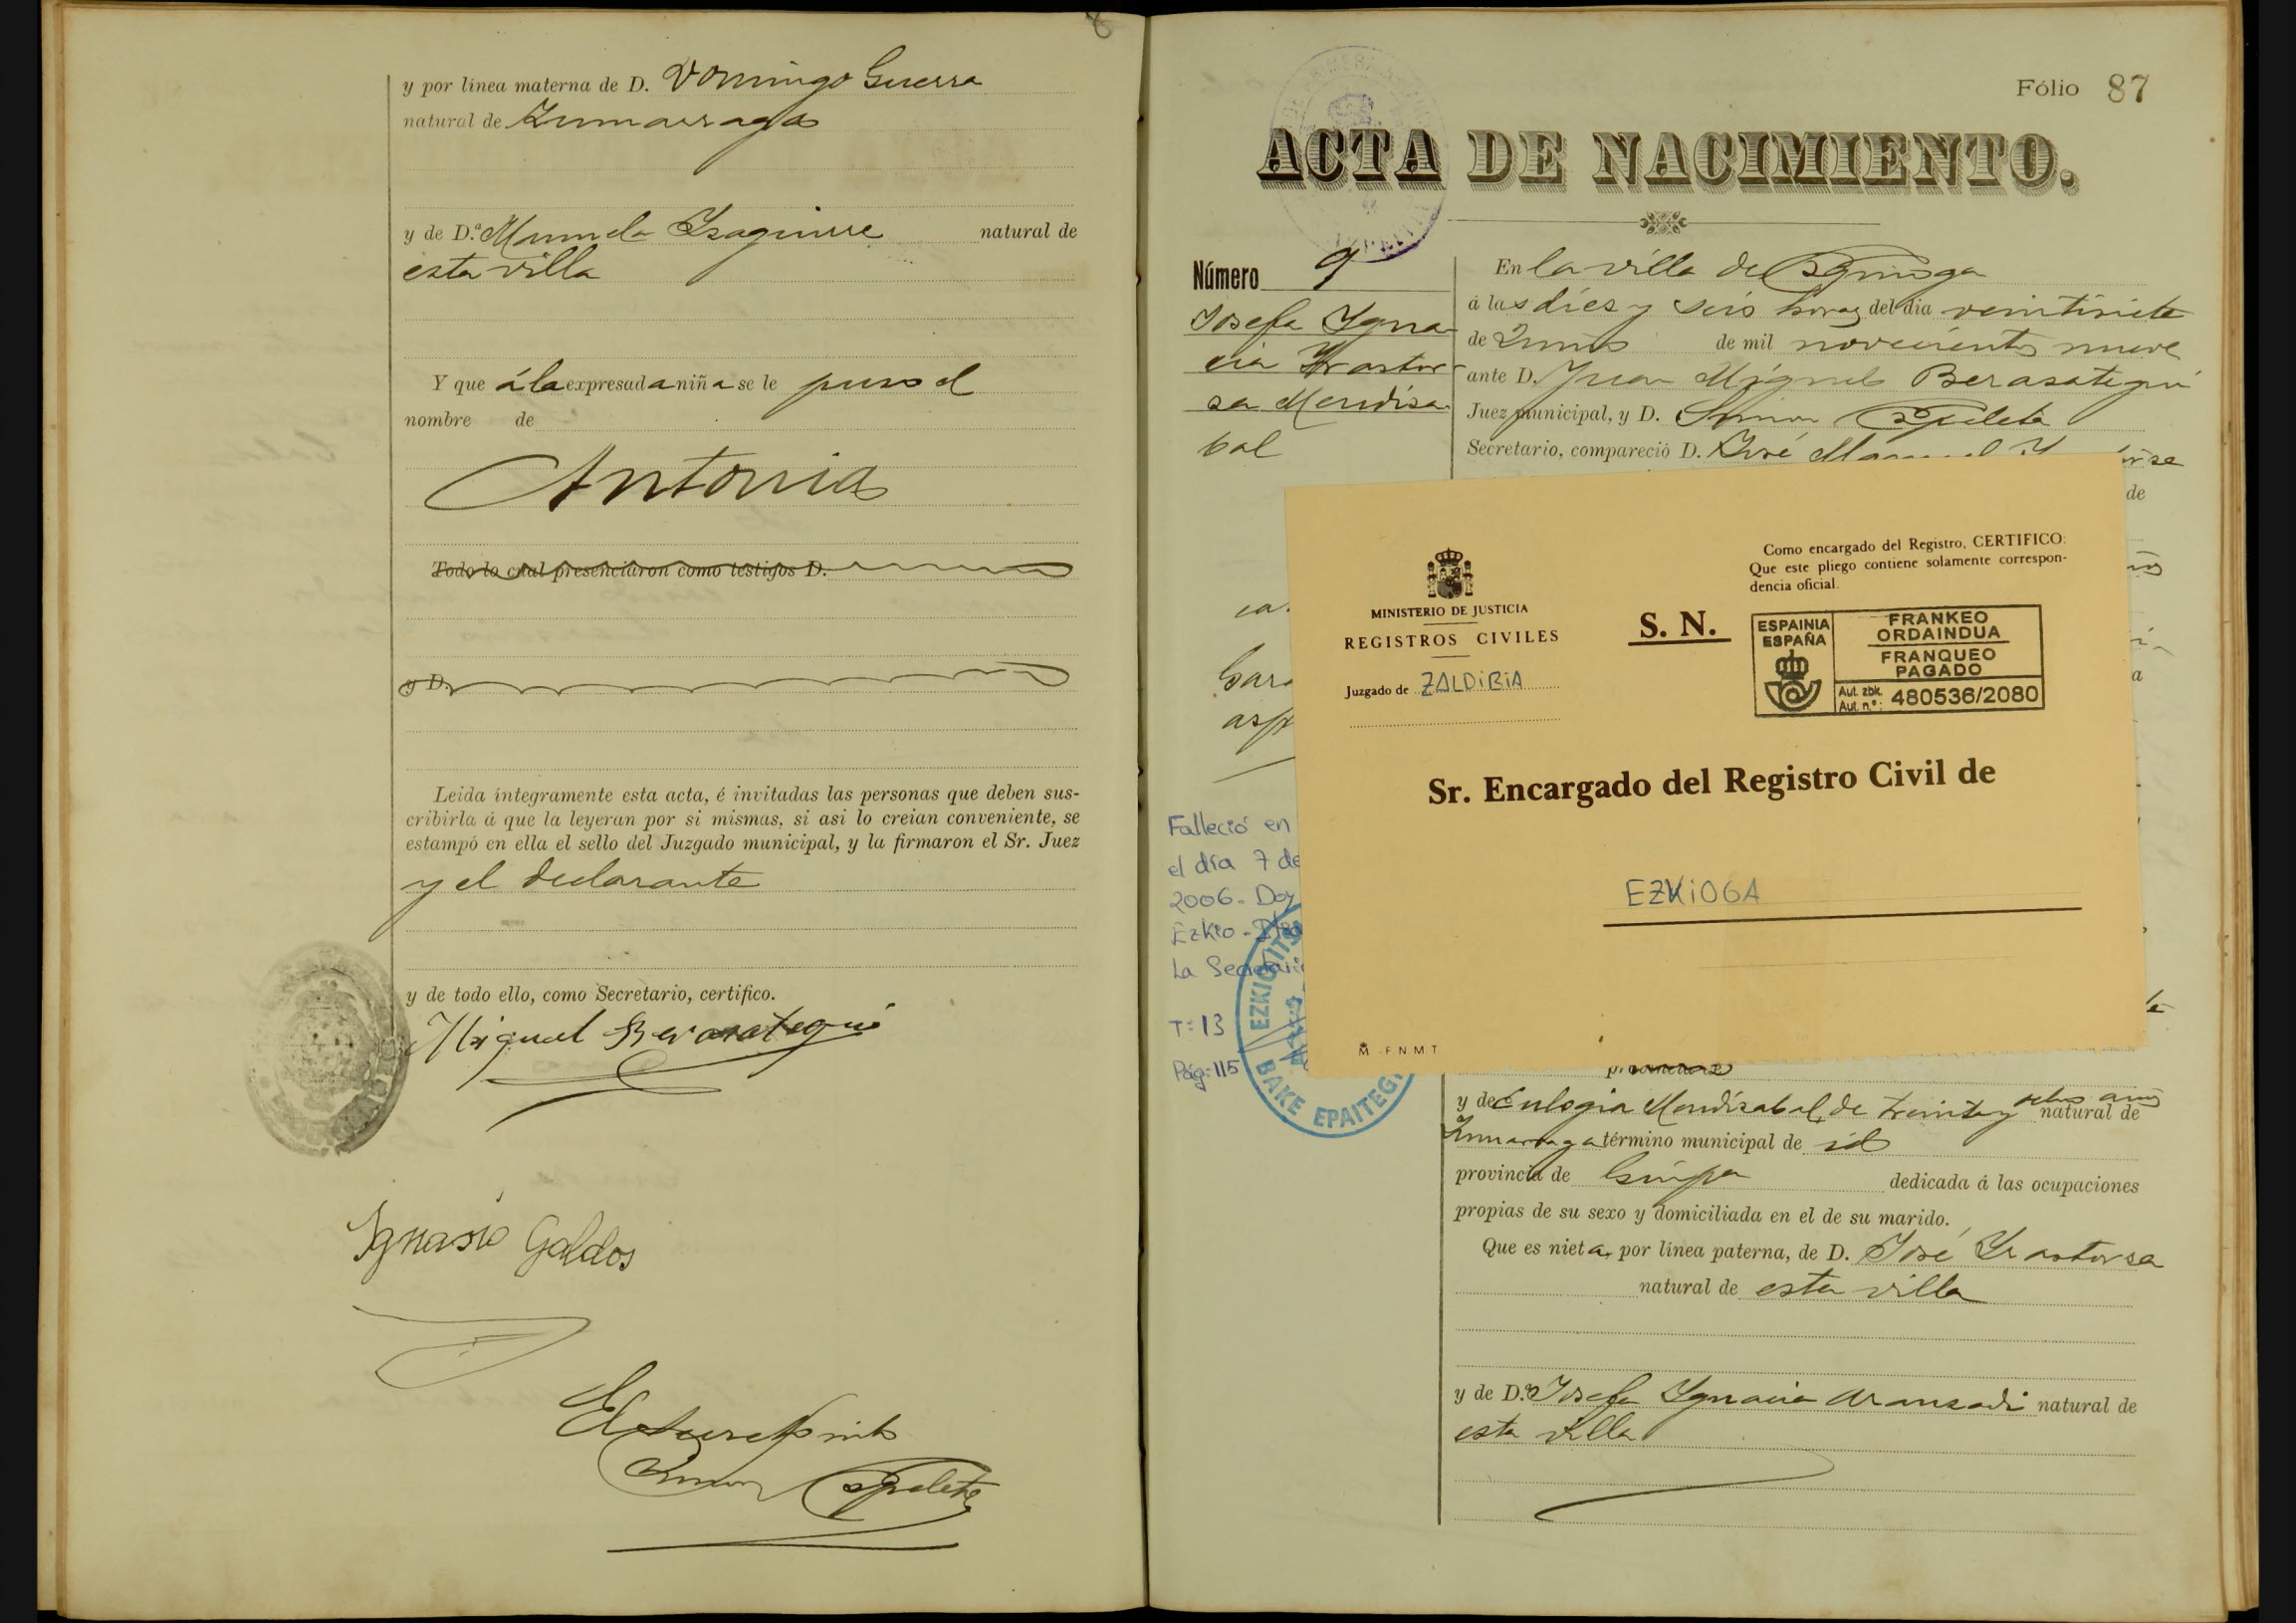 8
y por línea materna de D. Domingo Guerra
natural de Zumarraga
y de D.ª Manuela Ysaguirre natural de
esta villa
Y que á la expresada niña se le puso el
nombre de
Antonia
Todo lo cual presenciaron como testigos D.
y D.
Leida íntegramente esta acta, é invitadas las personas que deben sus-
cribirla á que la leyeran por si mismas, si asi lo creian conveniente, se
estampó en ella el sello del Juzgado municipal, y la firmaron el Sr. Juez
y el declarante
y de todo ello, como Secretario, certifico.
Miguel Berasategui
Ignasio Galdos
Fólio 87
ACTA DE NACIMIENTO.
Número 9
Josefa Ygna
cia Yrastor
sa Mendisa
bal
En la villa de
á las dies y seis horas del dia veintisiete
de Junio de mil novecientos nueve
ante D. Juan Miguel Berasategui
Juez municipal, y D. Simon
Secretario, compareció D. José
de
Falleció en
el día 7 de
2006. Doy
Ezkio-
La Secretari
T: 13
Pág: 115
EZKIO
BAKE EPAITEG
MINISTERIO DE JUSTICIA
REGISTROS CIVILES
Juzgado de ZALDIBIA
S. N.
Como encargado del Registro, CERTIFICO:
Que este pliego contiene solamente correspon-
dencia oficial.
ESPAINIA
ESPAÑA
FRANKEO
ORDAINDUA
FRANQUEO
PAGADO
Aut. zbk.
Aut. n.º: 480536/2080
Sr. Encargado del Registro Civil de
EZKIOGA
F N M T
y de Eulogia Mendisabal, de treinta y ocho años natural de
Zumarraga término municipal de id
provincia de Guipa dedicada á las ocupaciones
propias de su sexo y domiciliada en el de su marido.
Que es nieta, por línea paterna, de D. José Yrastorsa
natural de esta villa
y de D.ª Josefa Ygnacia Aransadi natural de
esta villa